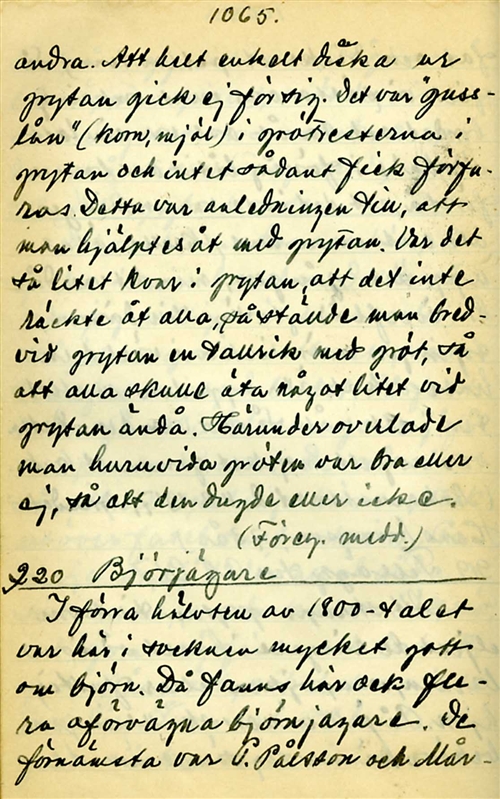 1065.
andra. Att helt enkelt diska ur
grytan gick ej för sig. Det var "guss-
lån" (korn, mjöl) i grötresterna i
grytan och intet sådant fick förfa-
ras. Detta var anledningen till, att
man hjälptes åt med grytan. Var det
så litet kvar i grytan, att det inte
räckte åt alla, så ställde man bred-
vid grytan en tallrik med gröt, så
att alla skulle äta något litet vid
grytan ändå. Härunder overlade
man huruvida gröten var bra eller
ej, så att den dugde eller icke.
(Föreg. medd.)
220 Björnjägare
I förra hälvten av 1800-talet
var här i socknen mycket gott
om björn. Då fanns här ock fle-
ra oförvägna björnjagare. De
förnämsta var P. Pålsson och Mår-